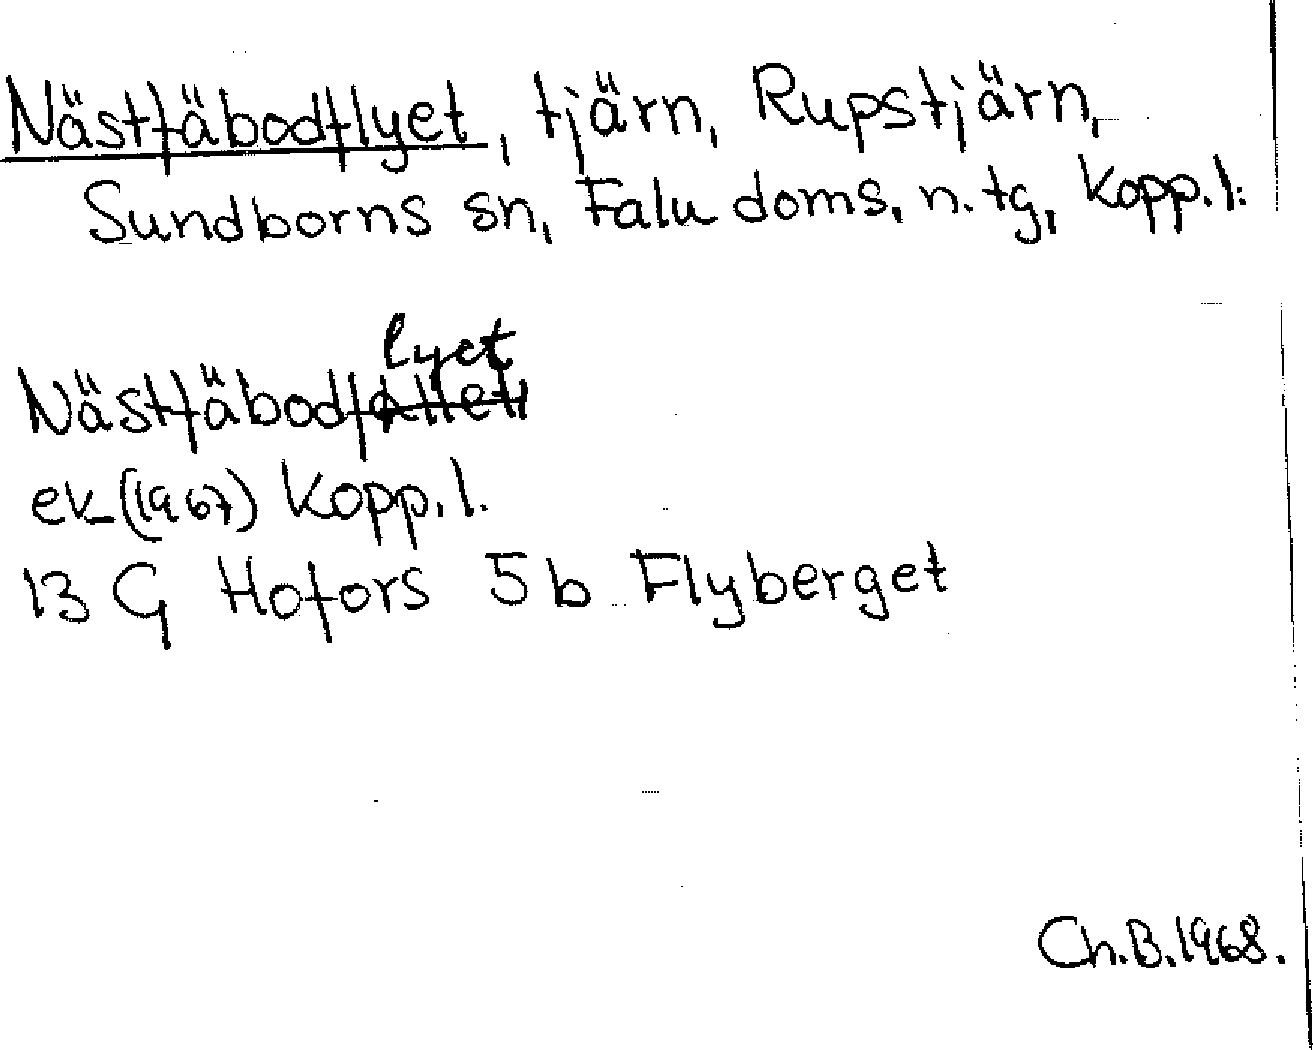 Nästfäbodflyet, tjärn, Rupstjärn,
Sundborns sn, Falu doms. n. tg, Kopp. l.
Nästfäbodflyet
ek (1967) Kopp. l.
13 G Hofors 5 b Flyberget
Ch.B. 1968.